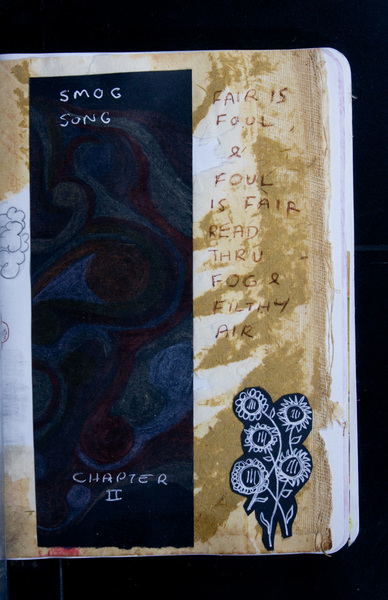 SMOG
SONG
CHAPTER
II
FAIR IS
FOUL
&
FOUL
IS FAIR
READ
THRU
FOG &
FILTHY
AIR